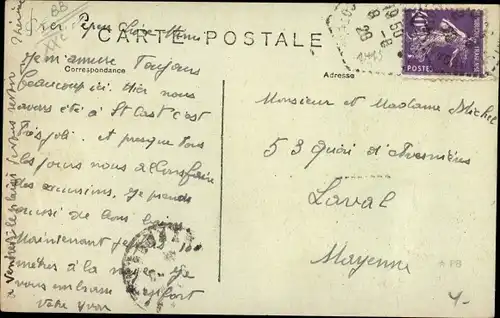 CARTE POSTALE
Correspondance
Adresse
Cher Pépère Chère Mémé
Je m'amuse Toujours
beaucoup ici. Hier nous
avons été à St Cast c'est
Très joli. et presque Tous
les jours nous allons faire
des excursions. Je prends
aussi de bons bains
Maintenant je fais 100
mètres à la nage. Je
vous embrasse fort
Votre Yvon
à
Monsieur et Madame Michel
53 Quai d'Avesnières
Laval
Mayenne
POSTES
40